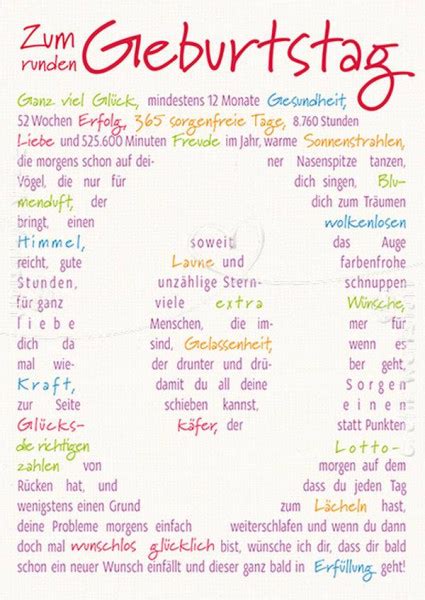 Zum runden Geburtstag
Ganz viel Glück, mindestens 12 Monate Gesundheit,
52 Wochen Erfolg, 365 sorgenfreie Tage, 8.760 Stunden
Liebe und 525.600 Minuten Freude im Jahr, warme Sonnenstrahlen,
die morgens schon auf dei- ner Nasenspitze tanzen,
Vögel, die nur für dich singen, Blu-
menduft, der dich zum Träumen
bringt, einen wolkenlosen
Himmel, soweit das Auge
reicht, gute Laune und farbenfrohe
Stunden, unzählige Stern- schnuppen
für ganz viele extra Wünsche,
liebe Menschen, die im- mer für
dich da sind, Gelassenheit, wenn es
mal wie- der drunter und drü- ber geht,
Kraft, damit du all deine Sorgen
zur Seite schieben kannst, einen
Glücks- käfer, der statt Punkten
die richtigen Lotto-
zahlen von morgen auf dem
Rücken hat, und dass du jeden Tag
wenigstens einen Grund zum Lächeln hast,
deine Probleme morgens einfach weiterschlafen und wenn du dann
doch mal wunschlos glücklich bist, wünsche ich dir, dass dir bald
schon ein neuer Wunsch einfällt und dieser ganz bald in Erfüllung geht!